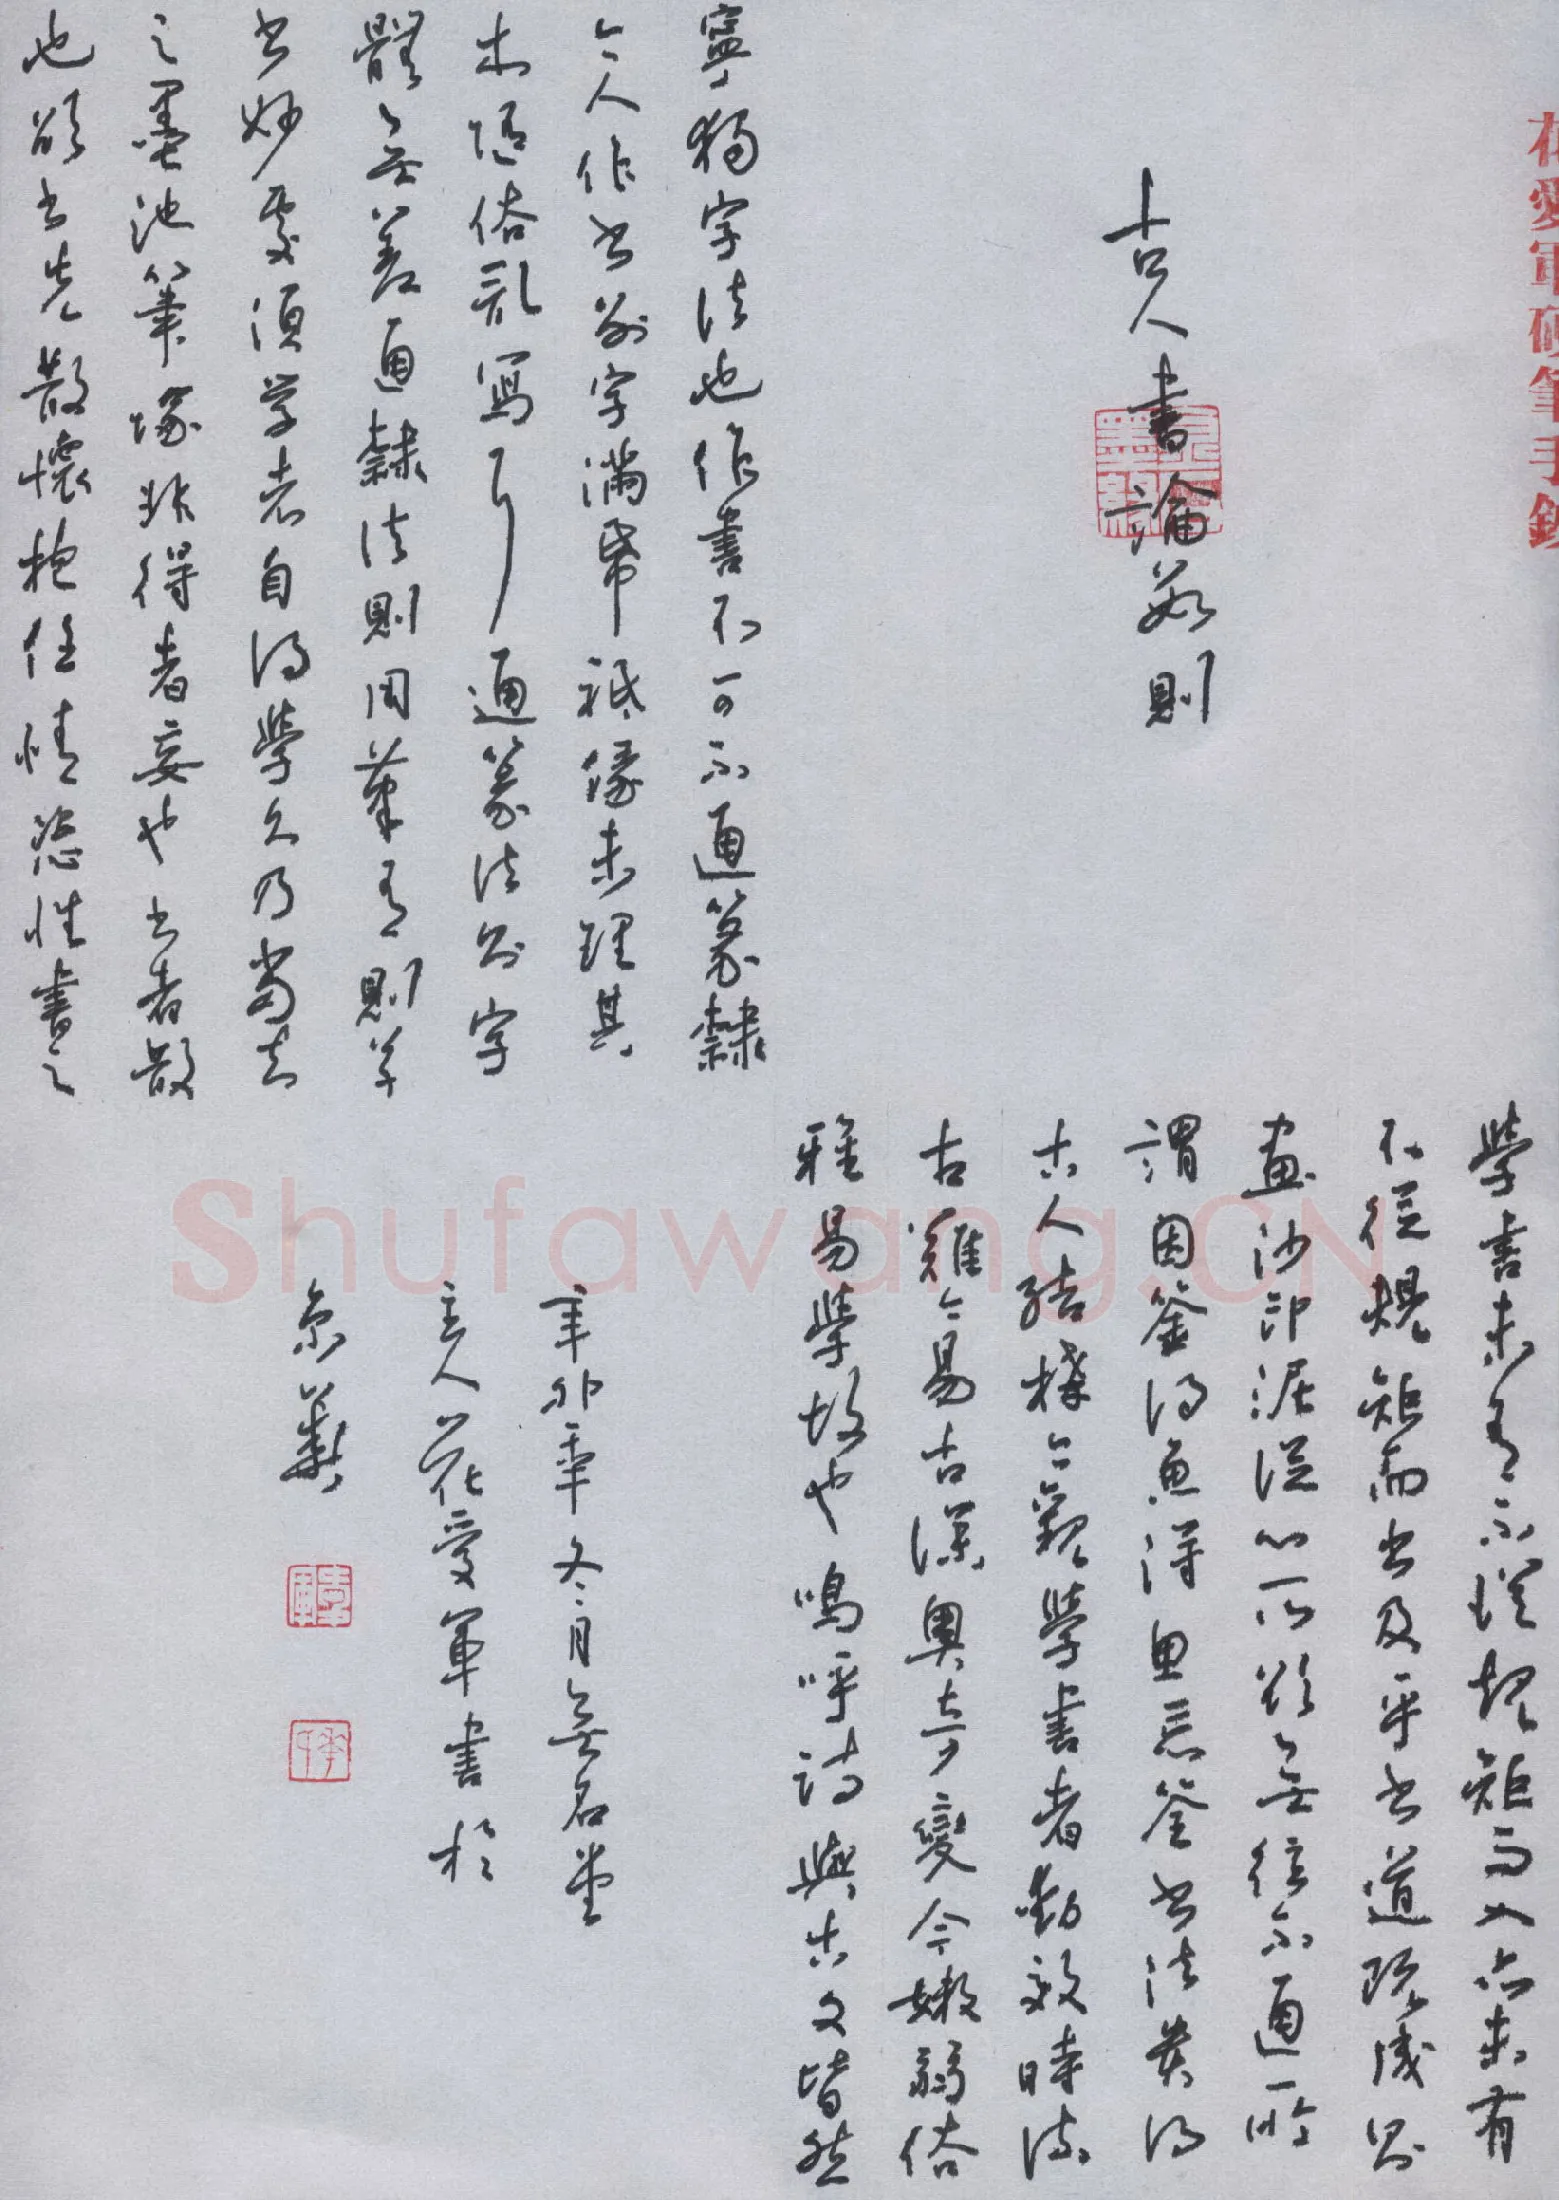 花愛軍硬筆手鈔
古人書論数則
學書未有不從規矩而入亦未有
不從規矩而出及乎書道既成則
畫沙印泥從心所欲無往不通所
謂因筌得魚得魚忘筌書法貴得
古人結構今觀學書者動效時流
古難今易古深奧奇變今嫩弱俗
雅易學故也嗚呼詩與古文皆然
寧獨字法也作書不可不通篆隸
今人作書別字滿帋祇緣未理其
本隨俗亂寫耳通篆法則字
體無差通隸法則用筆有則學
書妙處須學者自得學久乃當知
之墨池筆塚非得者妄也書者散
也欲書先散懷抱任情恣性書之
辛卯年冬月無名堂
主人花愛軍書於
京
Shufawang.CN